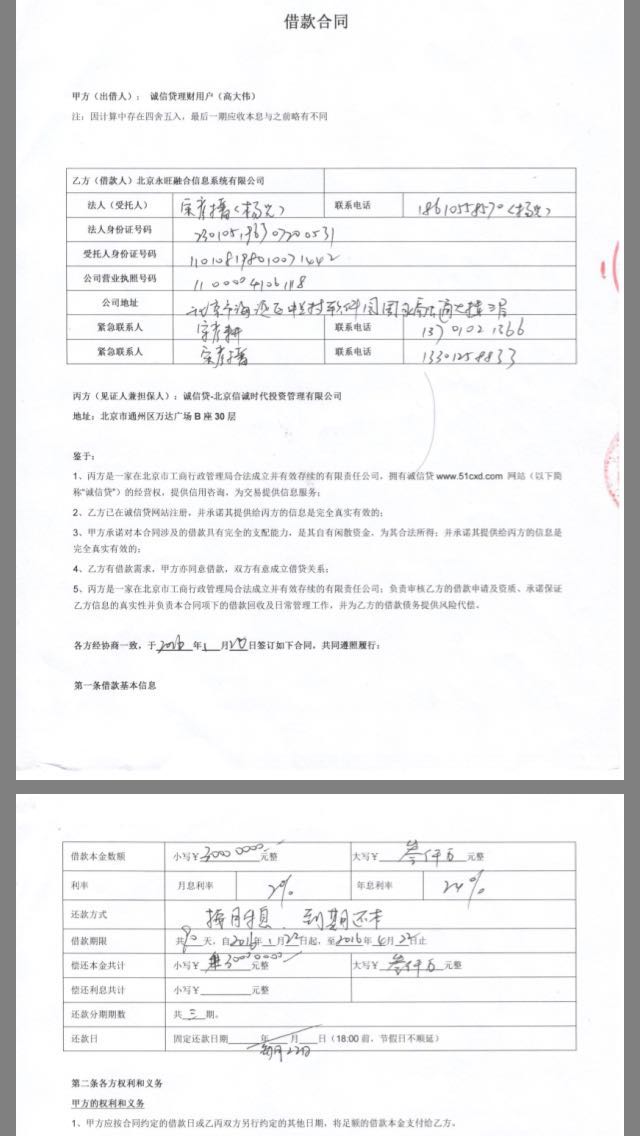 借款合同
甲方（出借人）： 诚信贷理财用户（高大伟）
注：因计算中存在四舍五入，最后一期应收本息与之前略有不同
乙方（借款人）北京永旺融合信息系统有限公司
法人（受托人） 宋孝播（杨光） 联系电话 18610558570（杨光）
法人身份证号码 230105196307200531
受托人身份证号码 110108198010071442
公司营业执照号码 1100004106118
公司地址 北京市海淀区中关村软件园
紧急联系人 宋孝耕 联系电话 13701021366
紧急联系人 宋孝播 联系电话 13301258833
丙方（见证人兼担保人）：诚信贷-北京信诚时代投资管理有限公司
地址：北京市通州区万达广场 B 座 30 层
鉴于：
1、丙方是一家在北京市工商行政管理局合法成立并有效存续的有限责任公司，拥有诚信贷 www.51cxd.com 网站（以下简
称“诚信贷”）的经营权，提供信用咨询，为交易提供信息服务；
2、乙方已在诚信贷网站注册，并承诺其提供给丙方的信息是完全真实有效的；
3、甲方承诺对本合同涉及的借款具有完全的支配能力，是其自有闲散资金，为其合法所得；并承诺其提供给丙方的信息是
完全真实有效的；
4、乙方有借款需求，甲方亦同意借款，双方有意成立借贷关系；
5、丙方是一家在北京市工商行政管理局合法成立并有效存续的有限责任公司；负责审核乙方的借款申请及资质、承诺保证
乙方信息的真实性并负责本合同项下的借款回收及日常管理工作，并为乙方的借款债务提供风险代偿。
各方经协商一致，于 2016 年 1 月 20 日签订如下合同，共同遵照履行：
第一条借款基本信息
借款本金数额 小写￥30000000元整 大写￥叁仟万元整
利率 月息利率 2% 年息利率 24%
还款方式 按月付息、到期还本
借款期限 共90天，自2016年1月23日起，至2016年4月23日止
偿还本金共计 小写￥30000000元整 大写￥叁仟万元整
偿还利息共计 小写￥ 元整
还款分期期数 共三期。
还款日 固定还款日期 年 月 日（18:00 前，节假日不顺延）
每月22日
第二条各方权利和义务
甲方的权利和义务
1、甲方应按合同约定的借款日或乙丙双方另行约定的其他日期，将足额的借款本金支付给乙方。